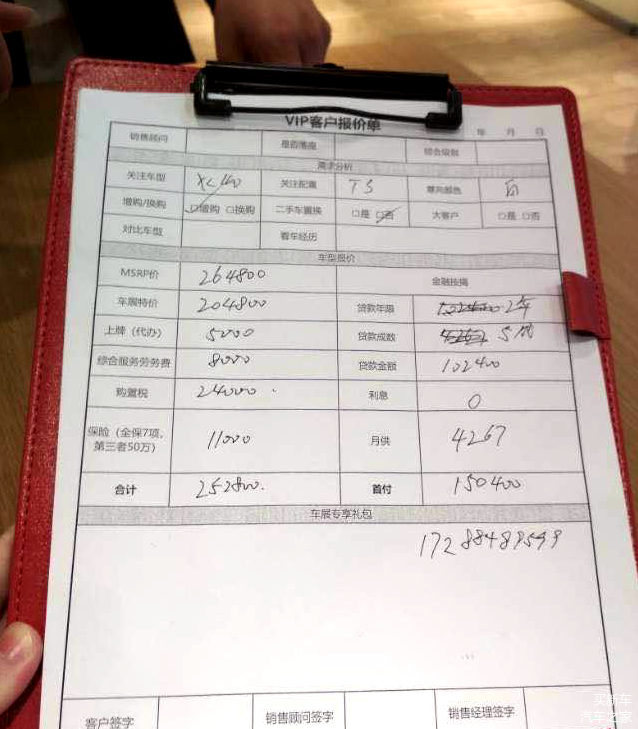 VIP客户报价单
年 月 日
销售顾问 是否落座 综合级数
需求分析
关注车型 XC40 关注配置 T3 意向颜色 白
增购/换购 □增购 □换购 二手车置换 □是 □否 大客户 □是 □否
对比车型 看车经历
车型报价
MSRP价 264800 金融按揭
车展特价 204800 贷款年限 2年
上牌（代办） 5000 贷款成数 5成
综合服务劳务费 8000 贷款金额 102400
购置税 24000 利息 0
保险（全保7项， 11000 月供 4267
第三者50万）
合计 252800. 首付 150400
车展专享礼包
17288489599
客户签字 销售顾问签字 销售经理签字
买新车
汽车之家